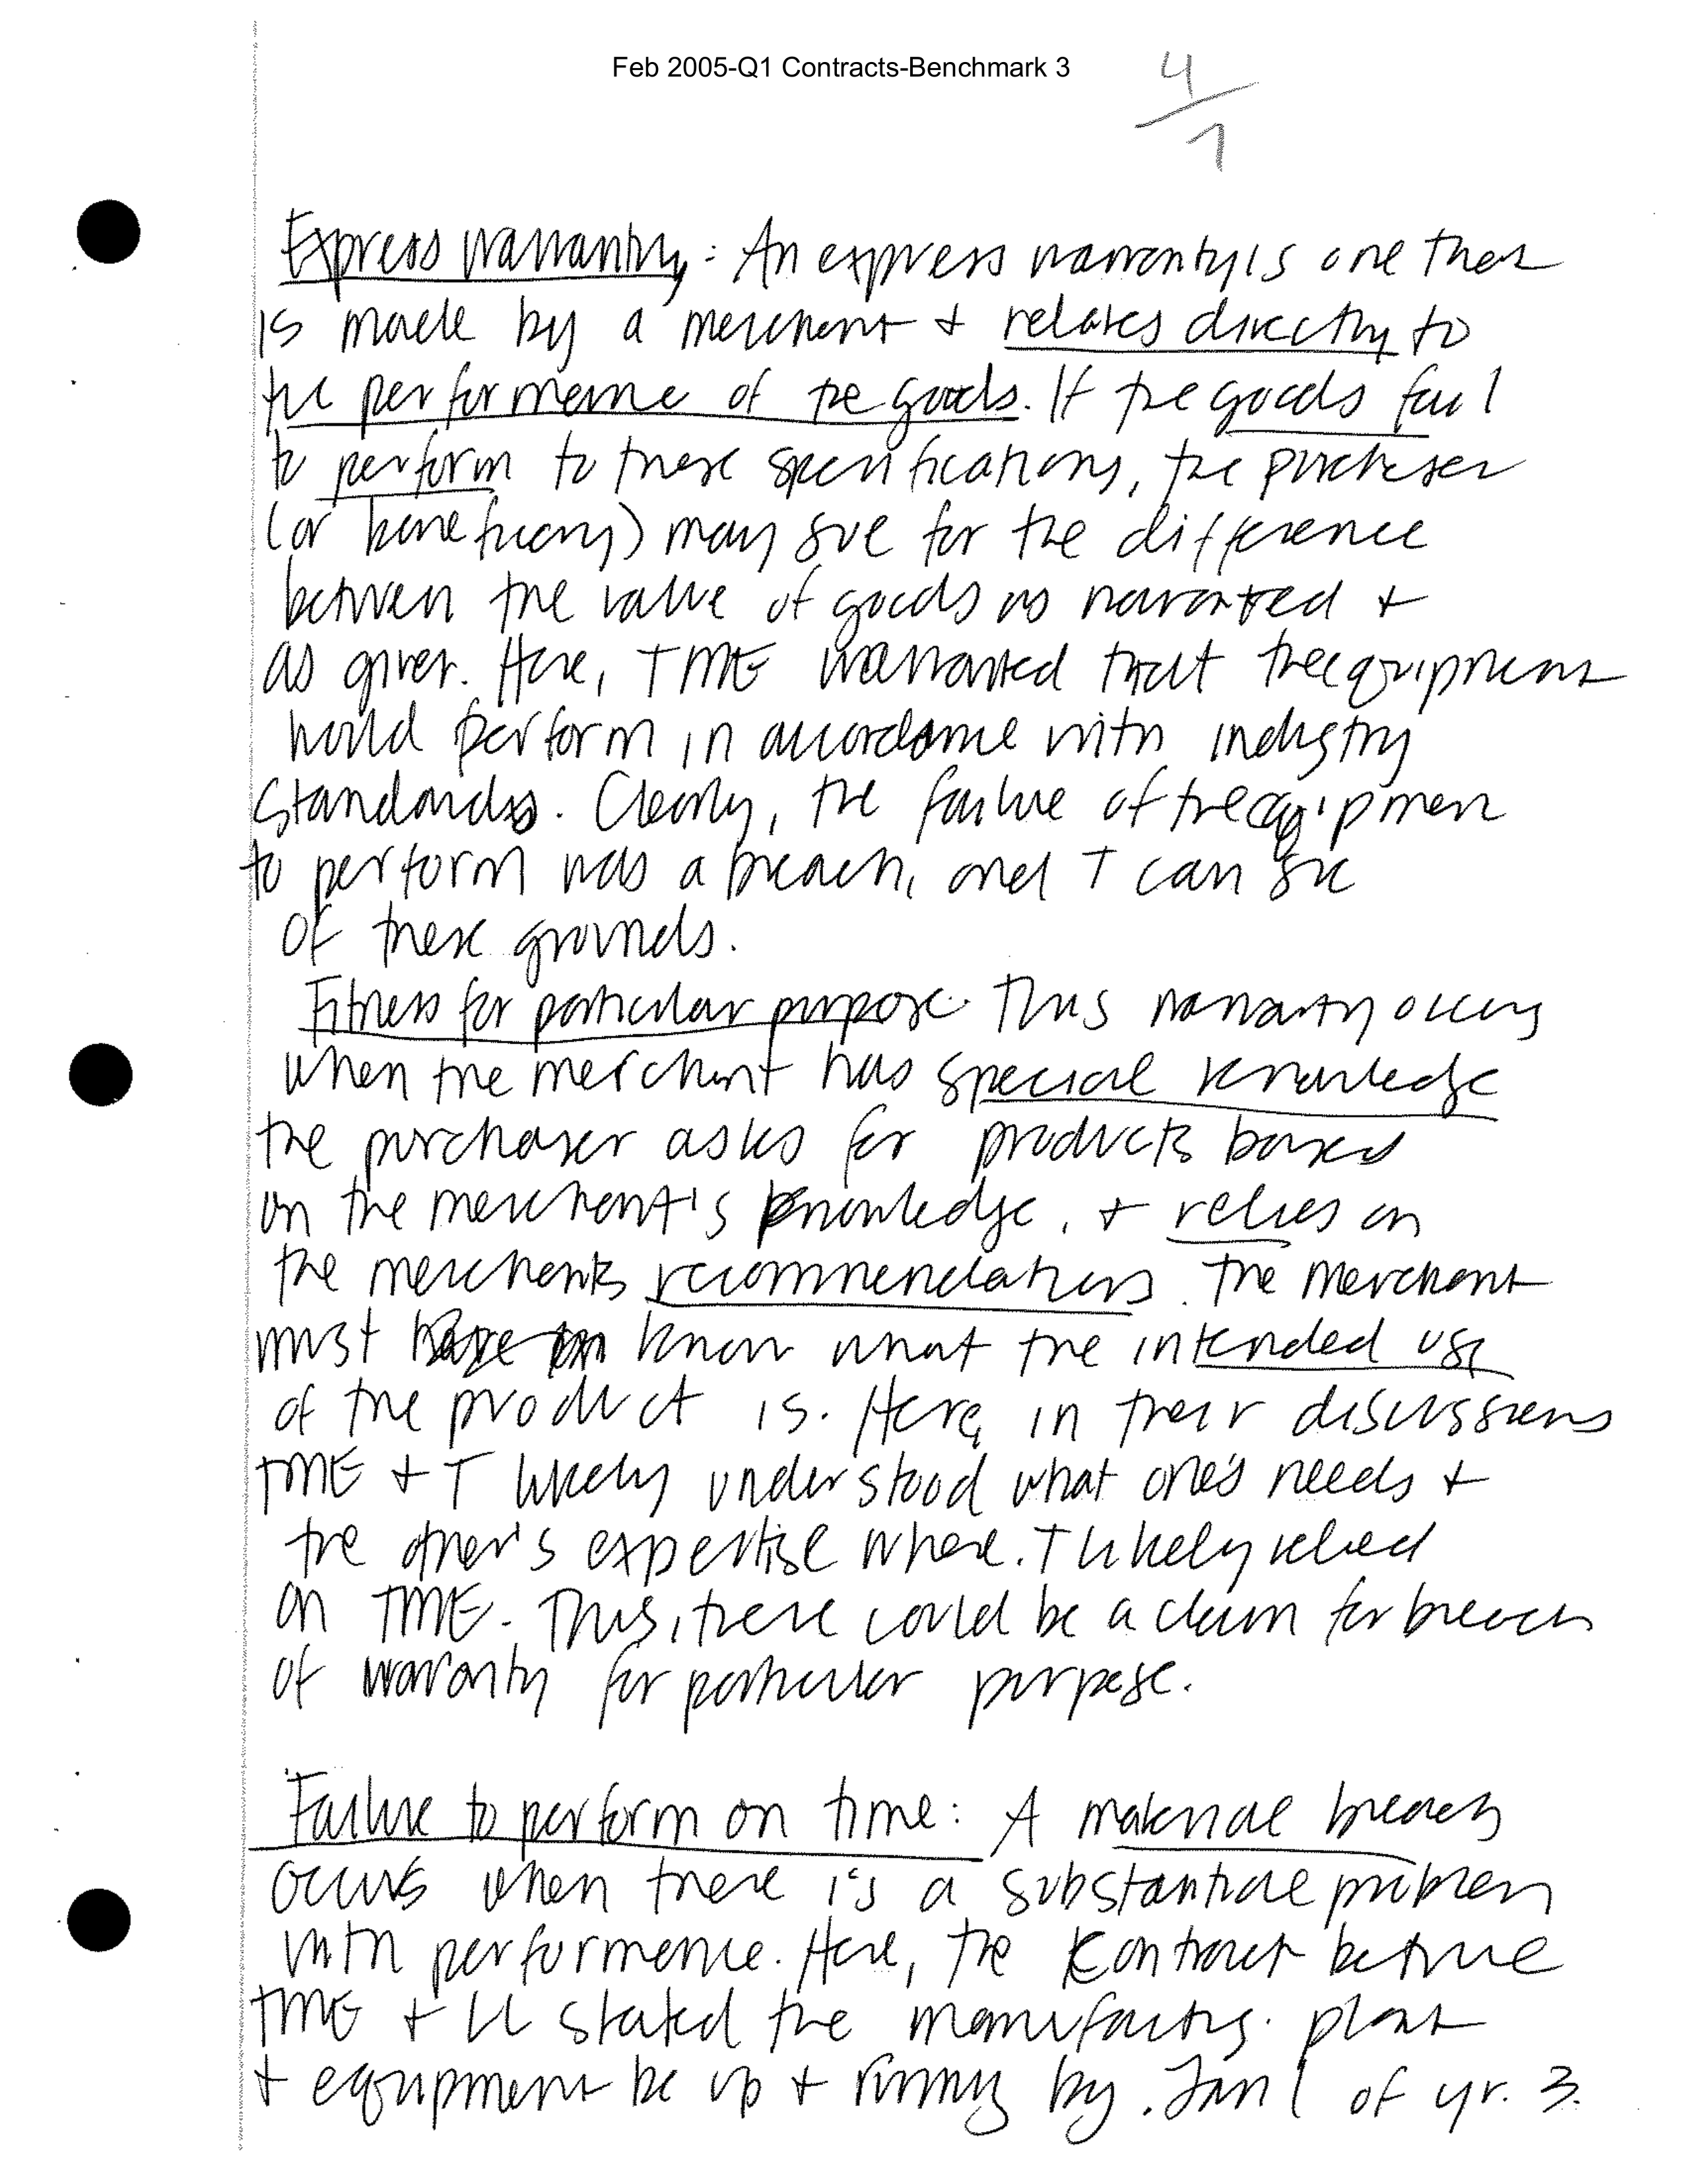 Feb 2005-Q1 Contracts-Benchmark 3
4/1
Express warranty: An express warranty is one that
is made by a merchant + relates directly to
the performance of the goods. If the goods fail
to perform to these specifications, the purchaser
(or beneficiary) may sue for the difference
between the value of goods as warranted +
as given. Here, TME warranted that the equipment
would perform in accordance with industry
standards. Clearly, the failure of the equipment
to perform was a breach, and T can sue
of these grounds.
Fitness for particular purpose. This warranty occurs
when the merchant has special knowledge
the purchaser asks for products based
on the merchant's knowledge, + relies on
the merchants recommendations. The merchant
must know what the intended use
of the product is. Here, in their discussions
TME + T likely understood what one's needs +
the other's expertise where. T likely relied
on TME. Thus, there could be a claim for breach
of waranty for particular purpose.
Failure to perform on time: A material breach
occurs when there is a substantial problem
with performance. Here, the Kontract between
TME + LL stated the manufacturg. plant
+ equipment be up + running by Jan 1 of yr. 3.